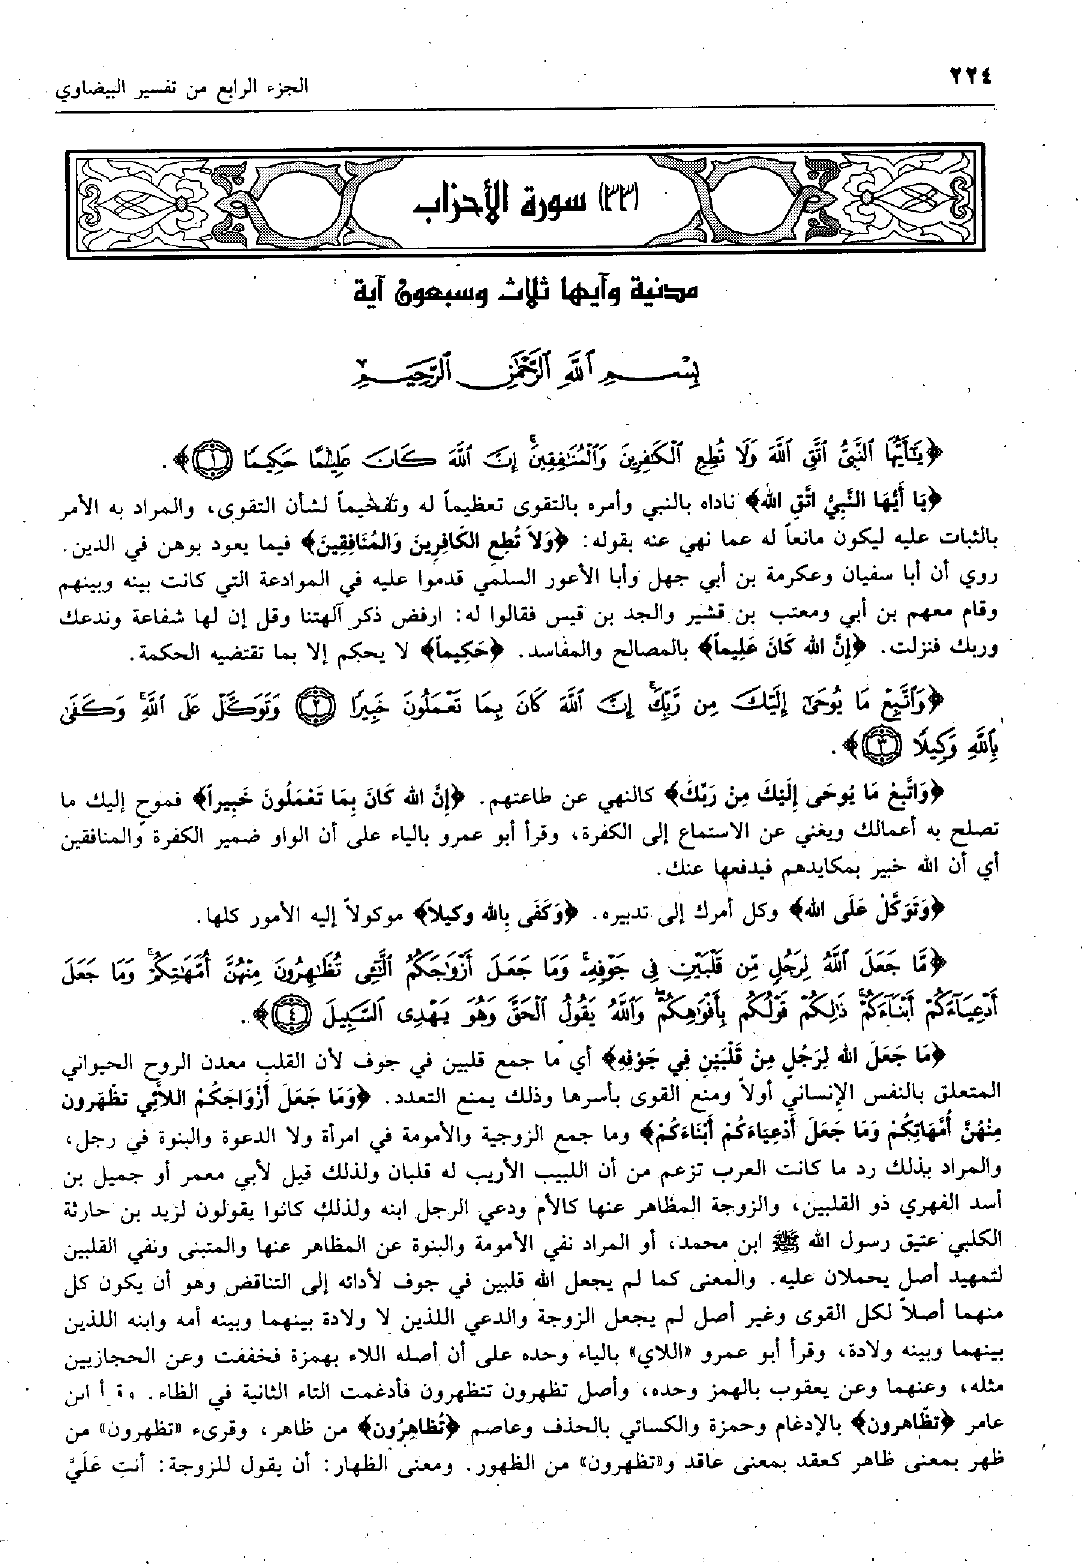 ٢٢٤
الجزء الرابع من تفسير البيضاوي
(٣٣) سورة الأحزاب
مدنية وآيها ثلاث وسبعون آية
بِسْمِ ٱللَّهِ ٱلرَّحْمَٰنِ ٱلرَّحِيمِ
﴿يَٰٓأَيُّهَا ٱلنَّبِىُّ ٱتَّقِ ٱللَّهَ وَلَا تُطِعِ ٱلْكَٰفِرِينَ وَٱلْمُنَٰفِقِينَۗ إِنَّ ٱللَّهَ كَانَ عَلِيمًا حَكِيمًا ۝١﴾.
﴿يَا أَيُّهَا النَّبِيُّ اتَّقِ الله﴾ ناداه بالنبي وأمره بالتقوى تعظيماً له وتفخيماً لشأن التقوى، والمراد به الأمر
بالثبات عليه ليكون مانعاً له عما نهي عنه بقوله: ﴿وَلاَ تُطِعِ الكَافِرِينَ وَالمُنَافِقِينَ﴾ فيما يعود بوهن في الدين.
روي أن أبا سفيان وعكرمة بن أبي جهل وأبا الأعور السلمي قدموا عليه في الموادعة التي كانت بينه وبينهم
وقام معهم بن أبي ومعتب بن قشير والجد بن قيس فقالوا له: ارفض ذكر آلهتنا وقل إن لها شفاعة وندعك
وربك فنزلت. ﴿إِنَّ الله كَانَ عَلِيماً﴾ بالمصالح والمفاسد. ﴿حَكِيماً﴾ لا يحكم إلا بما تقتضيه الحكمة.
﴿وَٱتَّبِعْ مَا يُوحَىٰٓ إِلَيْكَ مِن رَّبِّكَۚ إِنَّ ٱللَّهَ كَانَ بِمَا تَعْمَلُونَ خَبِيرًا ۝٢ وَتَوَكَّلْ عَلَى ٱللَّهِۚ وَكَفَىٰ
بِٱللَّهِ وَكِيلًا ۝٣﴾.
﴿وَاتَّبِعْ مَا يُوحَى إِلَيْكَ مِنْ رَبِّكَ﴾ كالنهي عن طاعتهم. ﴿إِنَّ الله كَانَ بِمَا تَعْمَلُونَ خَبِيراً﴾ فموح إليك ما
تصلح به أعمالك ويغني عن الاستماع إلى الكفرة، وقرأ أبو عمرو بالياء على أن الواو ضمير الكفرة والمنافقين
أي أن الله خبير بمكايدهم فيدفعها عنك.
﴿وَتَوَكَّلْ عَلَى الله﴾ وكل أمرك إلى تدبيره. ﴿وَكَفَى بِالله وَكيلاً﴾ موكولاً إليه الأمور كلها.
﴿مَّا جَعَلَ ٱللَّهُ لِرَجُلٍ مِّن قَلْبَيْنِ فِى جَوْفِهِۦۚ وَمَا جَعَلَ أَزْوَٰجَكُمُ ٱلَّٰٓـِٔى تُظَٰهِرُونَ مِنْهُنَّ أُمَّهَٰتِكُمْۚ وَمَا جَعَلَ
أَدْعِيَآءَكُمْ أَبْنَآءَكُمْۚ ذَٰلِكُمْ قَوْلُكُم بِأَفْوَٰهِكُمْۖ وَٱللَّهُ يَقُولُ ٱلْحَقَّ وَهُوَ يَهْدِى ٱلسَّبِيلَ ۝٤﴾.
﴿مَا جَعَلَ الله لِرَجُلٍ مِنْ قَلْبَيْنِ فِي جَوْفِهِ﴾ أي ما جمع قلبين في جوف لأن القلب معدن الروح الحيواني
المتعلق بالنفس الإنساني أولاً ومنع القوى بأسرها وذلك يمنع التعدد. ﴿وَمَا جَعَلَ أَزْوَاجَكُمْ اللاَّئِي تظّهرون
مِنْهُنَّ أُمَّهَاتِكُمْ وَمَا جَعَلَ أَدْعِيَاءَكُمْ أَبْنَاءَكُمْ﴾ وما جمع الزوجية والأمومة في امرأة ولا الدعوة والبنوة في رجل،
والمراد بذلك رد ما كانت العرب تزعم من أن اللبيب الأريب له قلبان ولذلك قيل لأبي معمر أو جميل بن
أسد الفهري ذو القلبين، والزوجة المظاهر عنها كالأم ودعي الرجل ابنه ولذلك كانوا يقولون لزيد بن حارثة
الكلبي عتيق رسول الله ﷺ ابن محمد، أو المراد نفي الأمومة والبنوة عن المظاهر عنها والمتبنى ونفي القلبين
لتمهيد أصل يحملان عليه. والمعنى كما لم يجعل الله قلبين في جوف لأدائه إلى التناقض وهو أن يكون كل
منهما أصلاً لكل القوى وغير أصل لم يجعل الزوجة والدعي اللذين لا ولادة بينهما وبينه أمه وابنه اللذين
بينهما وبينه ولادة، وقرأ أبو عمرو «اللاي» بالياء وحده على أن أصله اللاء بهمزة فخففت وعن الحجازيين
مثله، وعنهما وعن يعقوب بالهمز وحده، وأصل تظهرون تتظهرون فأدغمت التاء الثانية في الظاء. وقرأ ابن
عامر ﴿تظّاهرون﴾ بالإدغام وحمزة والكسائي بالحذف وعاصم ﴿تُظَاهِرُون﴾ من ظاهر، وقرىء «تظهرون» من
ظهر بمعنى ظاهر كعقد بمعنى عاقد و«تظهرون» من الظهور. ومعنى الظهار: أن يقول للزوجة: أنتِ عَلَيَّ